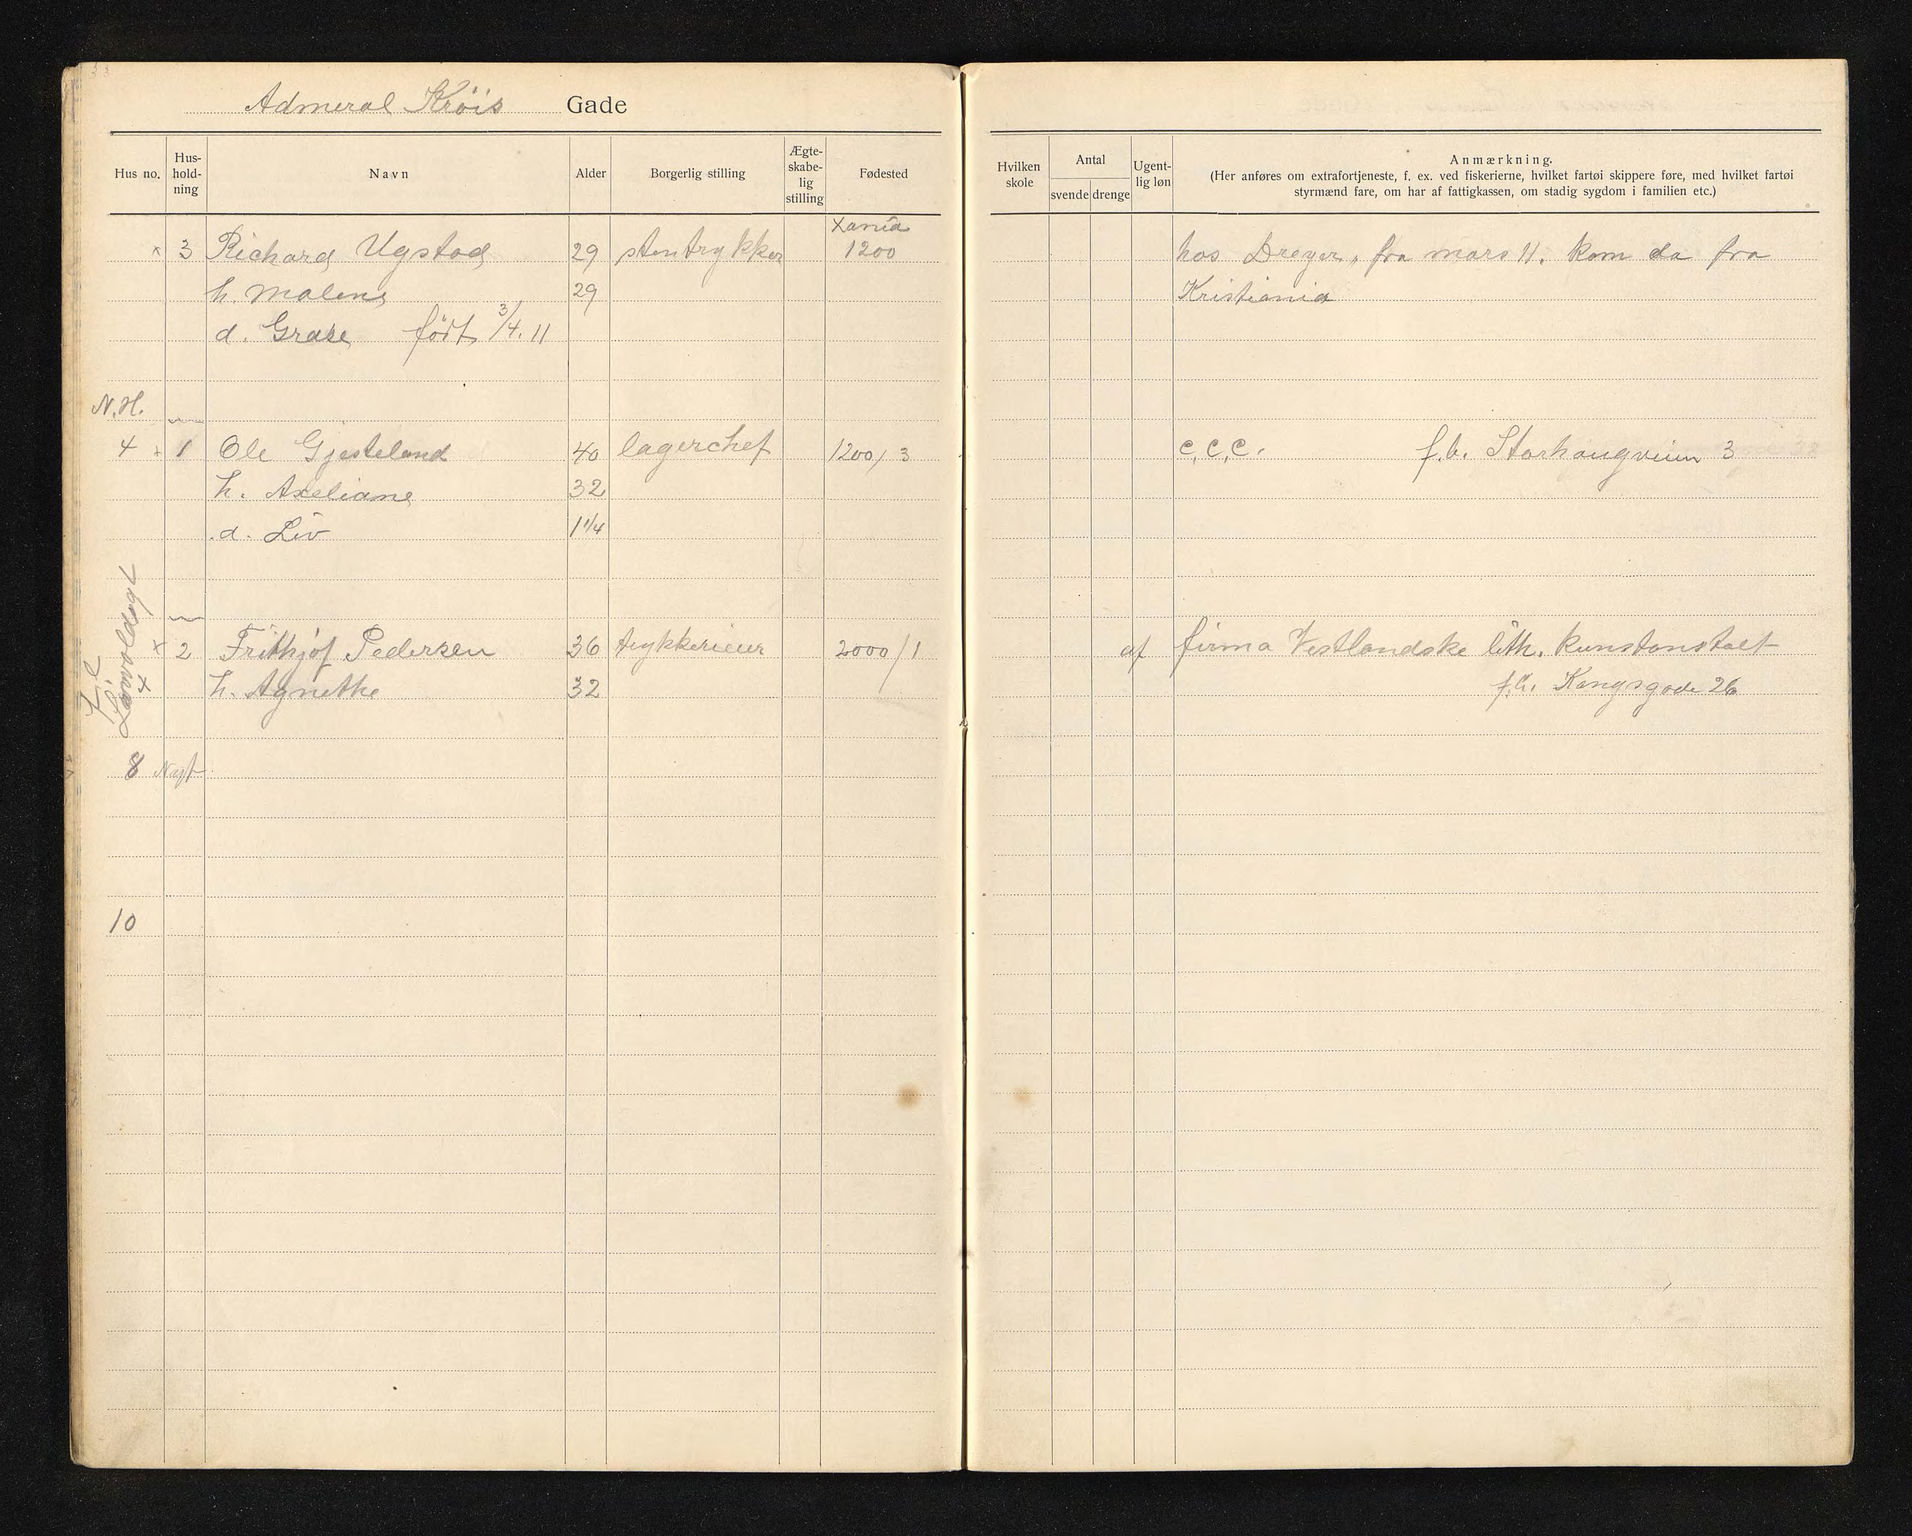 Admeral Krøis Gade
Hus no. Hus-hold-ning Navn Alder Borgerlig stilling Ægte-skabe-lig stilling Fødested
Hvilken skole Antal svende drenge Ugent-lig løn Anmærkning.
(Her anføres om extrafortjeneste, f. ex. ved fiskerierne, hvilket fartøi skippere føre, med hvilket fartøi
styrmænd fare, om har af fattigkassen, om stadig sygdom i familien etc.)
Xania
x 3 Richard Ugstad 29 stentrykker 1200 hos Dreyer, fra mars 11. kom da fra
h. Malene 29 Kristiania
d. Grase født 3/4. 11
N.H.
4 x 1 Ole Gjesteland 40 lagerchef 1200/3 C.C.C. f.b. Storhaugveien 3
h. Axeliane 32
d. Liv 1 1/4
x 2 Frithjof Pedersen 36 trykkerieier 2000/1 af firma Vestlandske lith. kunstanstalt
h. Agnethe 32 f.b. Kongsgade 26
8 Nyt
10